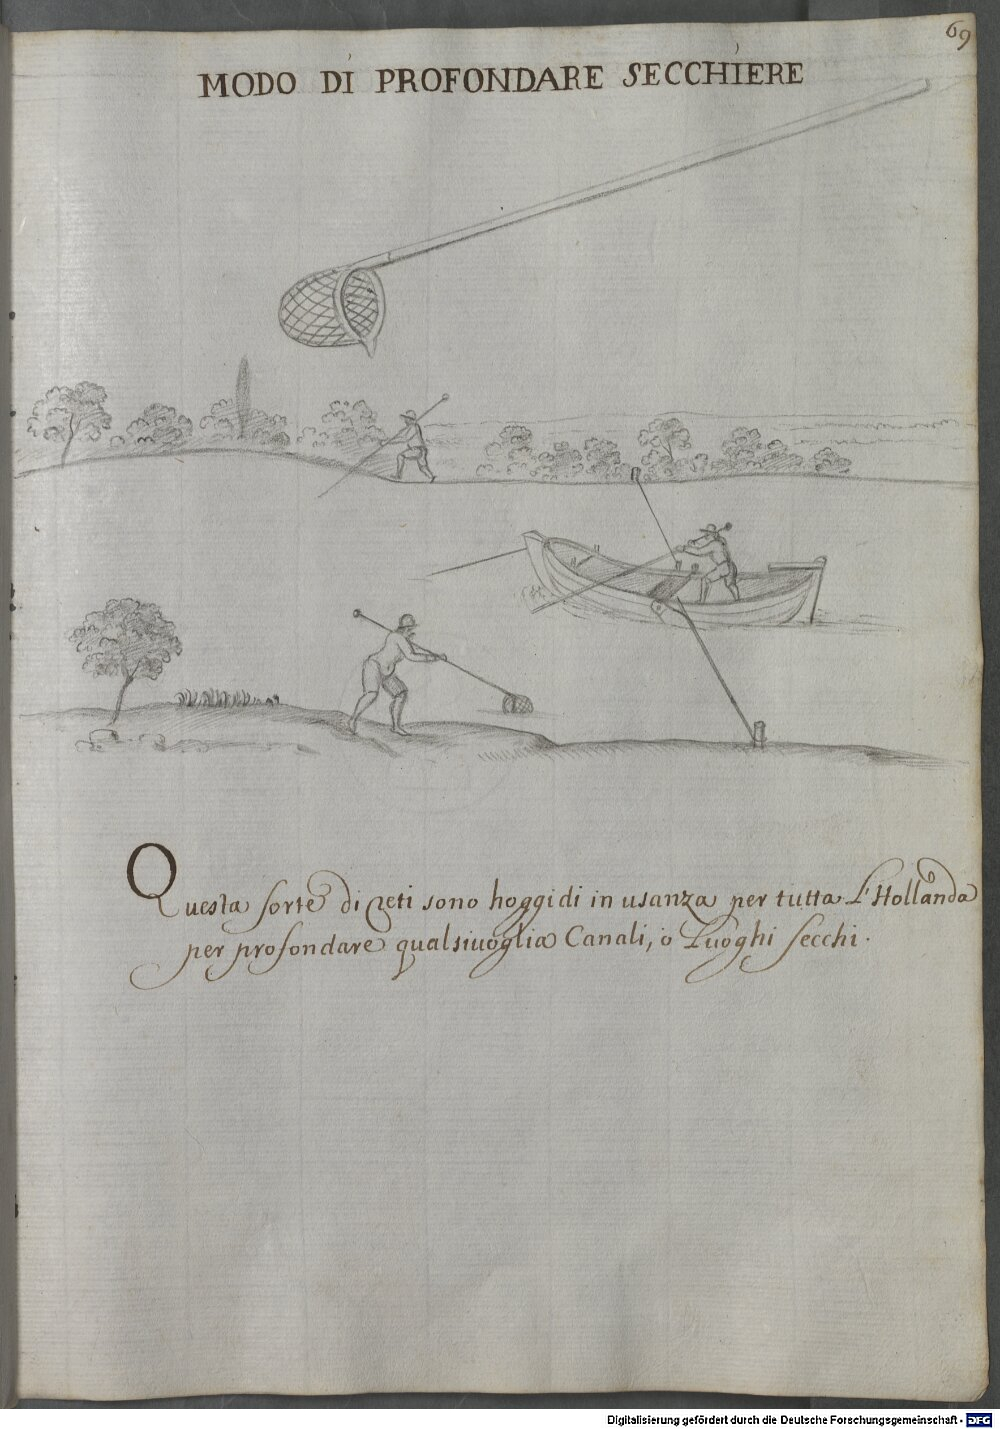 69
MODO DI PROFONDARE SECCHIERE
Questa sorte di reti sono hoggidi in usanza per tutta l'Hollanda
per profondare qualsiuoglia Canali, ò Luoghi secchi.
Digitalisierung gefördert durch die Deutsche Forschungsgemeinschaft - DFG